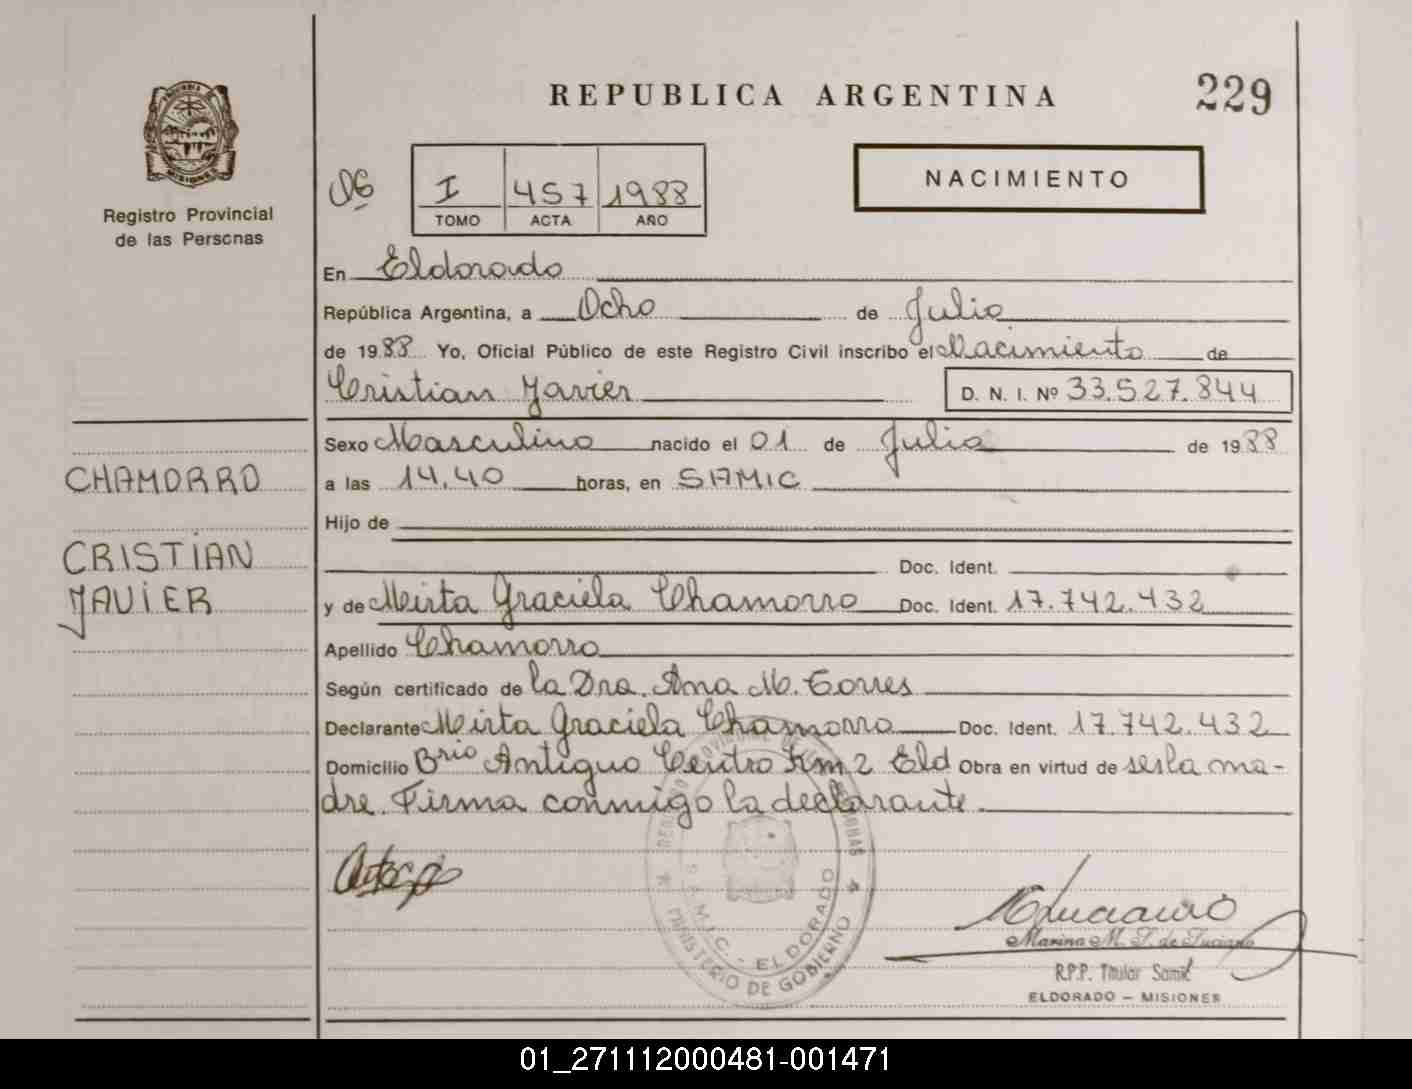 REPUBLICA ARGENTINA
229
PROVINCIA DE MISIONES
Registro Provincial
de las Personas
I 457 1988
TOMO ACTA AÑO
NACIMIENTO
En Eldorado
República Argentina, a Ocho de Julio
de 1988 Yo, Oficial Público de este Registro Civil inscribo el Nacimiento de
Cristian Javier D. N. I. Nº 33.527.844
Sexo Masculino nacido el 01 de Julio de 1988
CHAMORRO
a las 14,40 horas, en SAMIC
Hijo de
CRISTIAN
JAVIER
Doc. Ident.
y de Mirta Graciela Chamorro Doc. Ident. 17.742.432
Apellido Chamorro
Según certificado de la Dra. Ana M. Torres
Declarante Mirta Graciela Chamorro Doc. Ident. 17.742.432
Domicilio Brio Antiguo Centro Km 2 Eld Obra en virtud de ser la ma-
dre. Firma conmigo la declarante.
S.A.M.I.C. - ELDORADO
MINISTERIO DE GOBIERNO
Marina M. S. de Luciano
R.P.P. Titular Samic
ELDORADO — MISIONES
01_271112000481-001471